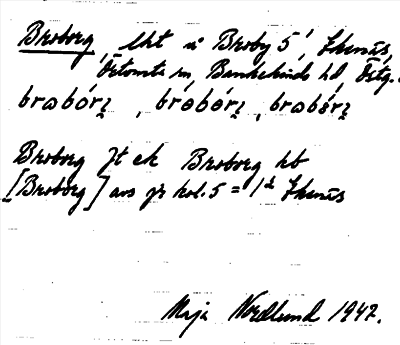 Broborg, lht å Broby 5, Skenäs,
Östomta sn, Bankekinds hd, Östg.
brɷbórı̨, brɷ́bórı̨, brɷbórı̨
Broborg Jt ek Broborg hb
[Broborg] avs på kol. 5 = 1d Skenäs
Maja Nordlund 1947.